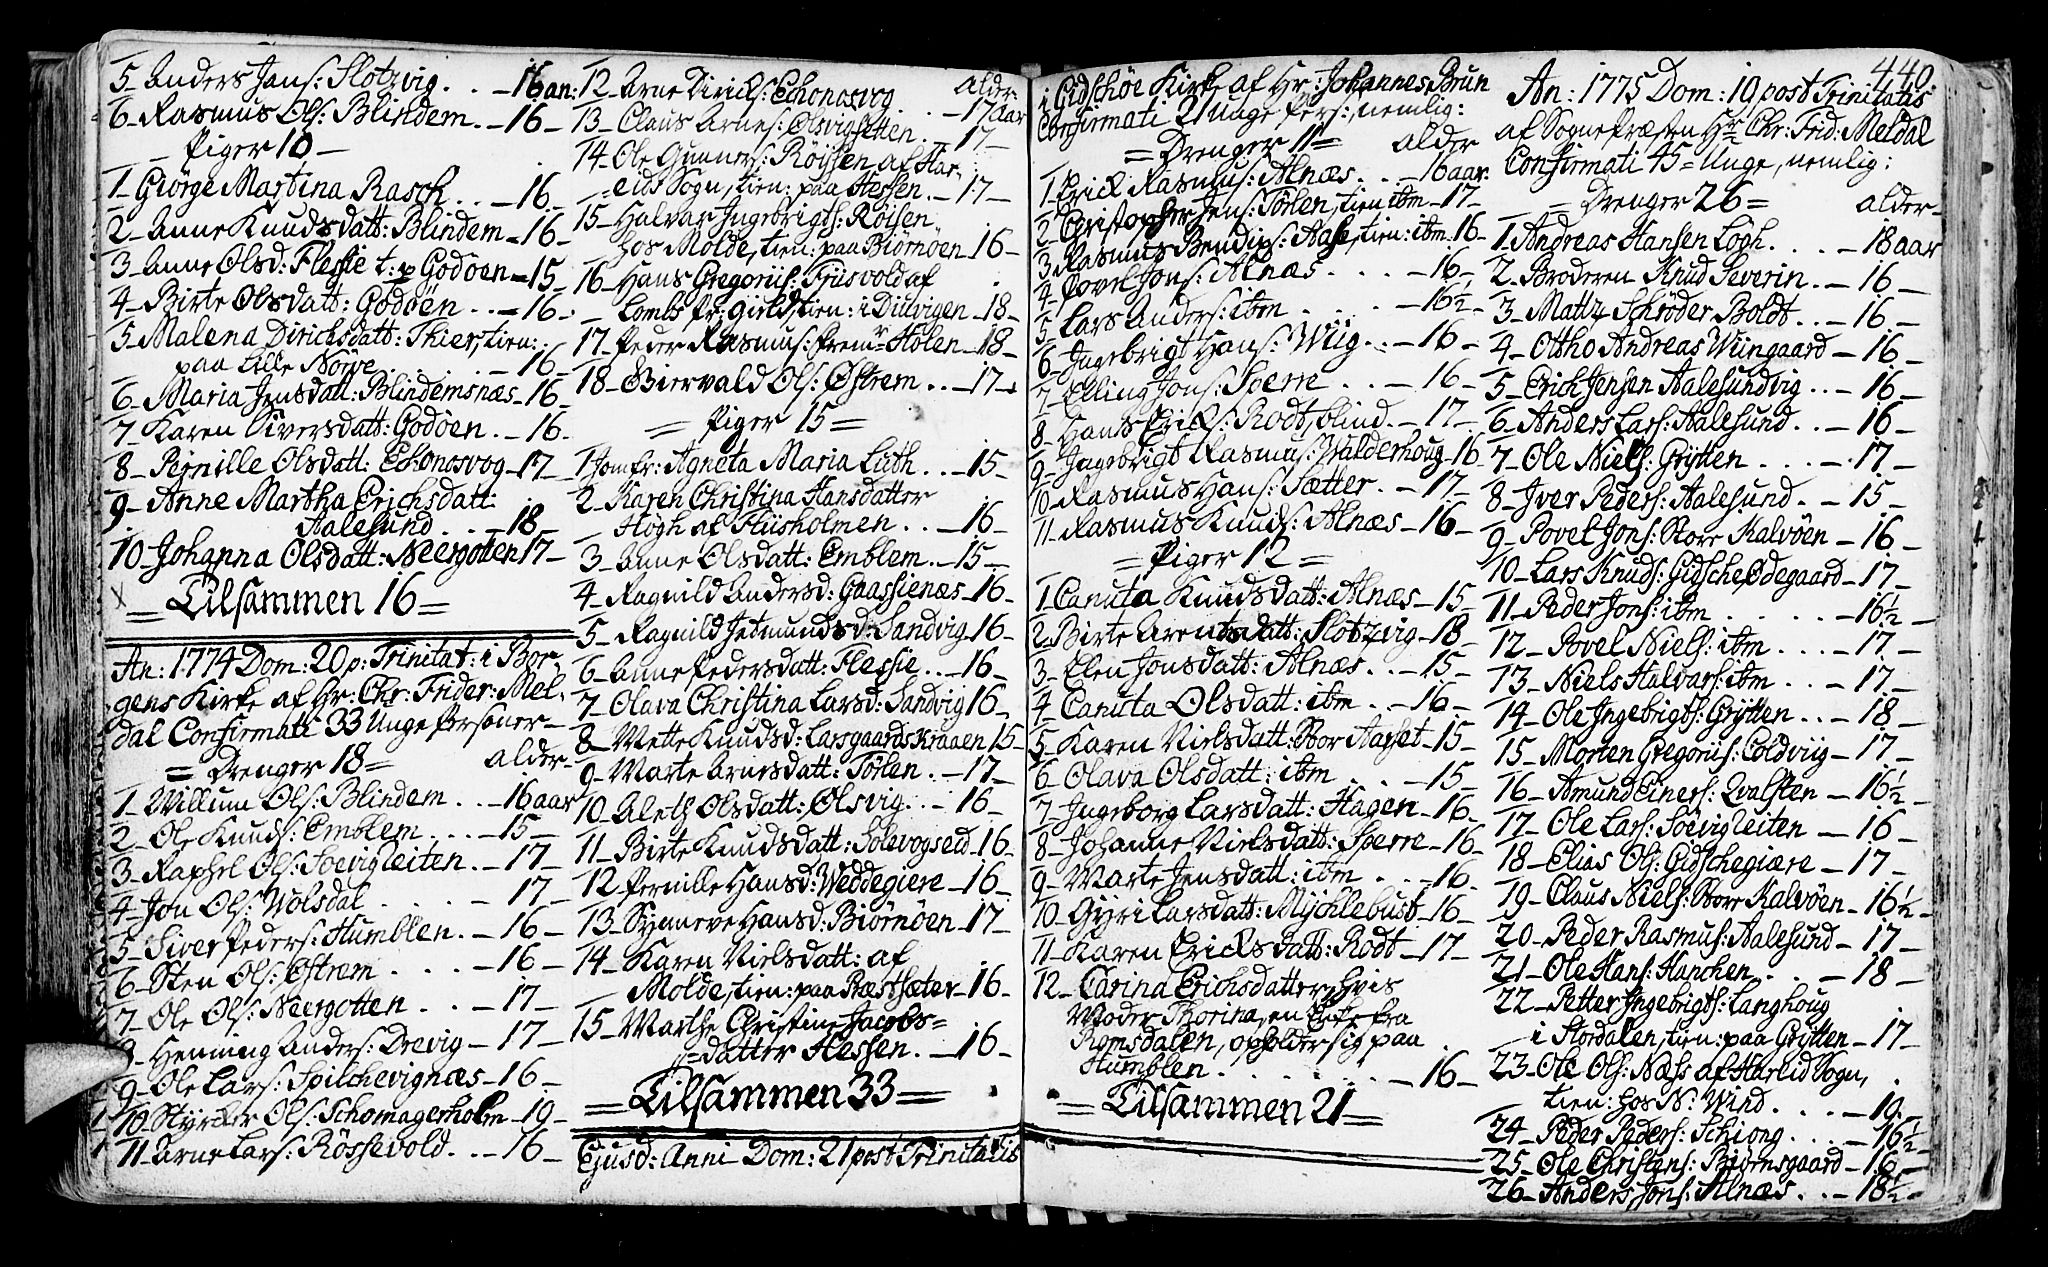 5 Anders Jans: Slotzvig . . . 16 an:
6 Rasmus Ols: Blindem . . 16
Piger 10
1 Giørge Martina Rasch . . . 16
2 Anne Knudsdatt: Blindem 16
3 Anne Olsd: Flessie t: p Godöen 15
4 Birte Olsdatt: Godöen . . 16
5 Malena Dirichsdatt: Thier, tien:
paa Lille Nörve . . . 16
6 Maria Jensdatt: Blindemsnæs 16
7 Karen Siversdatt: Godöen . 16
8 Pernille Olsdatt: Echonosvog 17
9 Anne Martha Erichsdatt:
Aalesund . . . 18
10 Johanna Olsdatt: Neergotten 17
= Tilsammen 16 =
An: 1774 Dom: 20 p: Trinitat: i Bor-
gens Kirke af Hr: Chr: Frider: Mel-
dal Confirmati 33 Unge Personer
= Drenger 18 = alder
1 Willum Ols: Blindem . . . 16 aar
2 Ole Knuds: Emblem . . . 15
3 Raphel Ols: Soevigleiten . . 17
4 Jon Ols: Wolsdal . . . 17
5 Siver Peders: Humblen . . 16
6 Sten Ols: Østrem . . . 16
7 Ole Ols: Neergotten . . . 17
8 Henning Anders: Drevig 17
9 Ole Lars: Spilchevignæs 16
10 Styrcker Ols: Schomagerholm 19
11 Arne Lars: Rössevold . . . 16
alder
12 Arne Dirichs: Echonosvog . . 17 aar
13 Claus Arnes: Olsvigsetten . . 17
14 Ole Gunners: Röissen af Har-
eids Sogn, tien: paa Hessen . 17
15 Halvar Ingebrigts: Röisen
hos Molde, tien: paa Biørnöen 16
16 Hans Gregoriis: Tjusvold af
Lombs Pr: gield, tien: i Diuvigen 18
17 Peder Rasmus: Frem Holen 18
18 Biervald Ols: Østrem . . . 17
= Piger 15 =
1 Jomfr: Agneta Maria Luth . . . 15
2 Karen Christina Hansdatter
Högh af Huusholmen . . . 16
3 Anne Olsdatt: Emblem . 15
4 Ragnild Andersd: Gaassienæs 16
5 Ragnild Jetmundsd: Sandvig 16
6 Anne Pedersdatt: Flessie . . 16
7 Olava Christina Larsd: Sandvig 16
8 Mette Knudsd: Larsgaards Kraaen 15
9 Marte Arnesdatt: Törlen . 17
10 Aleth Olsdatt: Olsvig . . 16
11 Birte Knudsdatt: Solevogseid 16
12 Pernille Hansd: Weddegiere 16
13 Synneve Hansd: Biørnöen 17
14 Karen Nielsdatt: af
Molde, tien: paa Ræstsæter 16
15 Marthe Christine Jacobs=
=datter Hessen . . 16
= Tilsammen 33 =
Ejusd: Anni Dom: 21 post Trinitatis
i Gidschöe Kirke af Hr: Johannes Brun
Confirmati 21 Unge Pers:, nemlig:
= Drenger 11 = alder
1 Erick Rasmus: Alnæs . . . 16 aar.
2 Christopher Jens: Törlen, tien ibm 17
3 Rasmus Bendix: Aase, tien: ibm: 16
4 Povel Jons: Alnæs . . . 16
5 Lars Anders: ibm . . . 16½
6 Ingebrigt Hans: Wiig . . . 16
7 Elling Jons: Sperre . . . 16
8 Hans Ericks: Rodt, blind . 17
9 Ingebrigt Rasmus: Walderhoug 16
10 Rasmus Hans: Sætter . . 17
11 Rasmus Knuds: Alnæs 16
= Piger 12 =
1 Canuta Knudsdatt: Alnæs 15
2 Birte Arentsdatt: Slotzvig 18
3 Elen Jonsdatt: Alnæs . . . 15
4 Canuta Olsdatt: ibm . . 16
5 Karen Nielsdatt: Stor Aarset 15
6 Olava Olsdatt: ibm . . . 15
7 Ingeborg Larsdatt: Hagen 16
8 Johanne Nielsdatt: Sperre 16
9 Marte Jensdatt: ibm . . . 16
10 Gÿri Larsdatt: Mÿchlebust 16
11 Karen Ericksdatt: Rodt 17
12 Carina Erichsdatter, hvis
Moder Thorina, en Enke fra
Romsdalen, opholder sig paa
Humblen . . . 16
= Tilsammen 21 =
440
An: 1775 Dom: 10 post Trinitatis
af Sognepræsten Hr Chr: Frid: Meldal
Confirmati 45 Unge, nemlig:
= Drenger 26 = alder
1 Andreas Hansen Logh . . . 18 aar
2 Broderen Knud Severin . . 16
3 Mattz Schröder Boldt . . 16
4 Ottho Andreas Wiingaard 16
5 Erich Jensen Aalesundvig . . 16
6 Anders Lars: Aalesund . . 16
7 Ole Niels: Grÿtten . . . 17
8 Iver Peders: Aalesund . . 15
9 Povel Jons: Store Kalvöen 16
10 Lars Knuds: Gidsche Ødegaard 17
11 Peder Jons: ibm . . . 16½
12 Povel Niels: ibm . . . 17
13 Niels Halvars: ibm . . . 17
14 Ole Ingebrigts: Grÿtten . . . 18
15 Morten Gregoriis: Coldviig 17
16 Amund Einers: Qvalsten 16½
17 Ole Lars: Soevigleiten 16
18 Elias Ols: Gidschegiære 17
19 Claus Niels: Store Kalvöen 16½
20 Peder Rasmus: Aalesund 17
21 Ole Hans: Hanchen . . . 18
22 Petter Ingebrigts: Langhoug
i Stordalen, tien: paa Grÿtten 17
23 Ole Ols: Næss af Harеid Sogn,
tien: hos N: Wind . . . 19
24 Peder Peders: Schiong . . . 16½
25 Ole Christens: Biörnsgaard 16½
26 Anders Jons: Alnæs . . . 18½